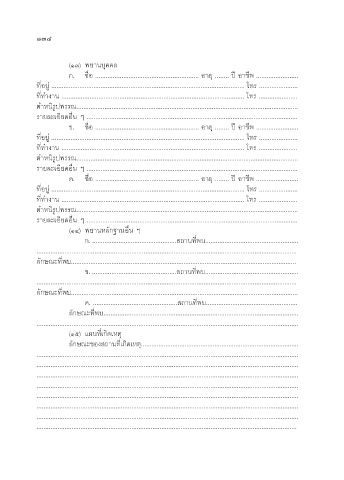 ๑๓๕
(๑๓) พยานบุคคล
ก. ชื่อ ........................................ อายุ ........ ปี อาชีพ ........................
ที่อยู่ ........................................ โทร ........................
ที่ทำงาน ........................................ โทร ........................
ตำหนิรูปพรรณ........................................
รายละเอียดอื่น ๆ ........................................
ข. ชื่อ ........................................ อายุ ........ ปี อาชีพ ........................
ที่อยู่ ........................................ โทร ........................
ที่ทำงาน ........................................ โทร ........................
ตำหนิรูปพรรณ........................................
รายละเอียดอื่น ๆ ........................................
ค. ชื่อ ........................................ อายุ ........ ปี อาชีพ ........................
ที่อยู่ ........................................ โทร ........................
ที่ทำงาน ........................................ โทร ........................
ตำหนิรูปพรรณ........................................
รายละเอียดอื่น ๆ ........................................
(๑๔) พยานหลักฐานอื่น ๆ
ก. ........................................สถานที่พบ........................................
ลักษณะที่พบ........................................
ข. ........................................สถานที่พบ........................................
ลักษณะที่พบ........................................
ค. ........................................สถานที่พบ........................................
ลักษณะที่พบ........................................
(๑๕) แผนที่เกิดเหตุ
ลักษณะของสถานที่เกิดเหตุ........................................